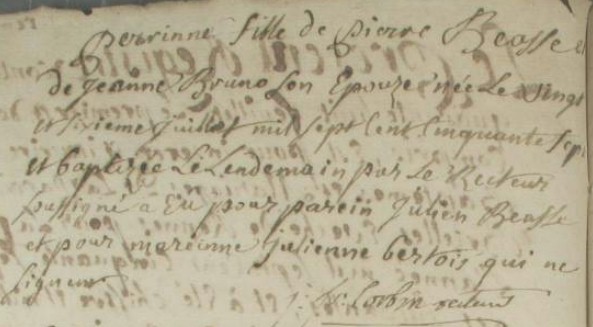 perrinne fille de pierre Beasse et
de jeanne Bruno son Epouze née Le vingt
et sixieme juillet mil sept Cent Cinquante sept
et baptizée Le Lendemain par Le Recteur
sousigné a Eu pour parein julien Beasse
et pour mareinne julienne bertois qui ne
signent
recteur